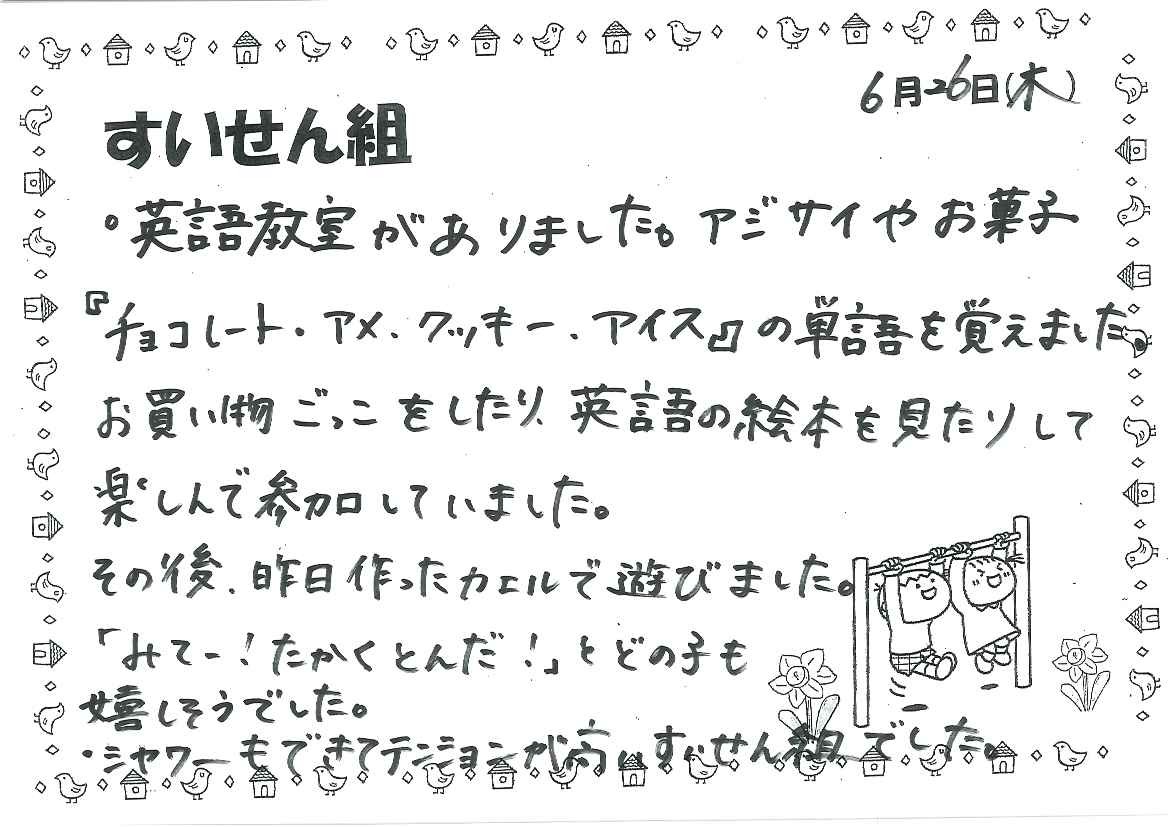 6月26日(木)
すいせん組
。英語教室がありました。アジサイやお菓子
『チョコレート・アメ・クッキー・アイス』の単語を覚えました。
お買い物ごっこをしたり、英語の絵本を見たりして
楽しんで参加していました。
その後、昨日作ったカエルで遊びました。
「みてー!たかくとんだ!」とどの子も
嬉しそうでした。
・シャワーもできてテンションが高いすいせん組でした。